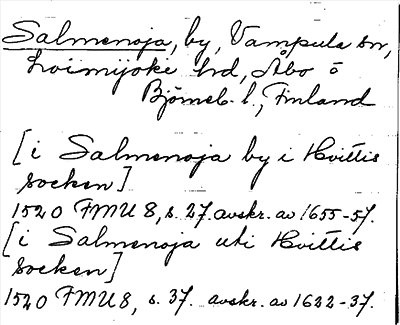 Salmenoja, by, Vampula sn,
Loimijoki hd, Åbo o
Björneb. l., Finland
[i Salmenoja by i Hvittis
socken]
1520 FMU 8, s. 27. avskr. av 1655-57.
[i Salmenoja uti Hvittis
socken]
1520 FMU 8, s. 37. avskr. av 1622-37.